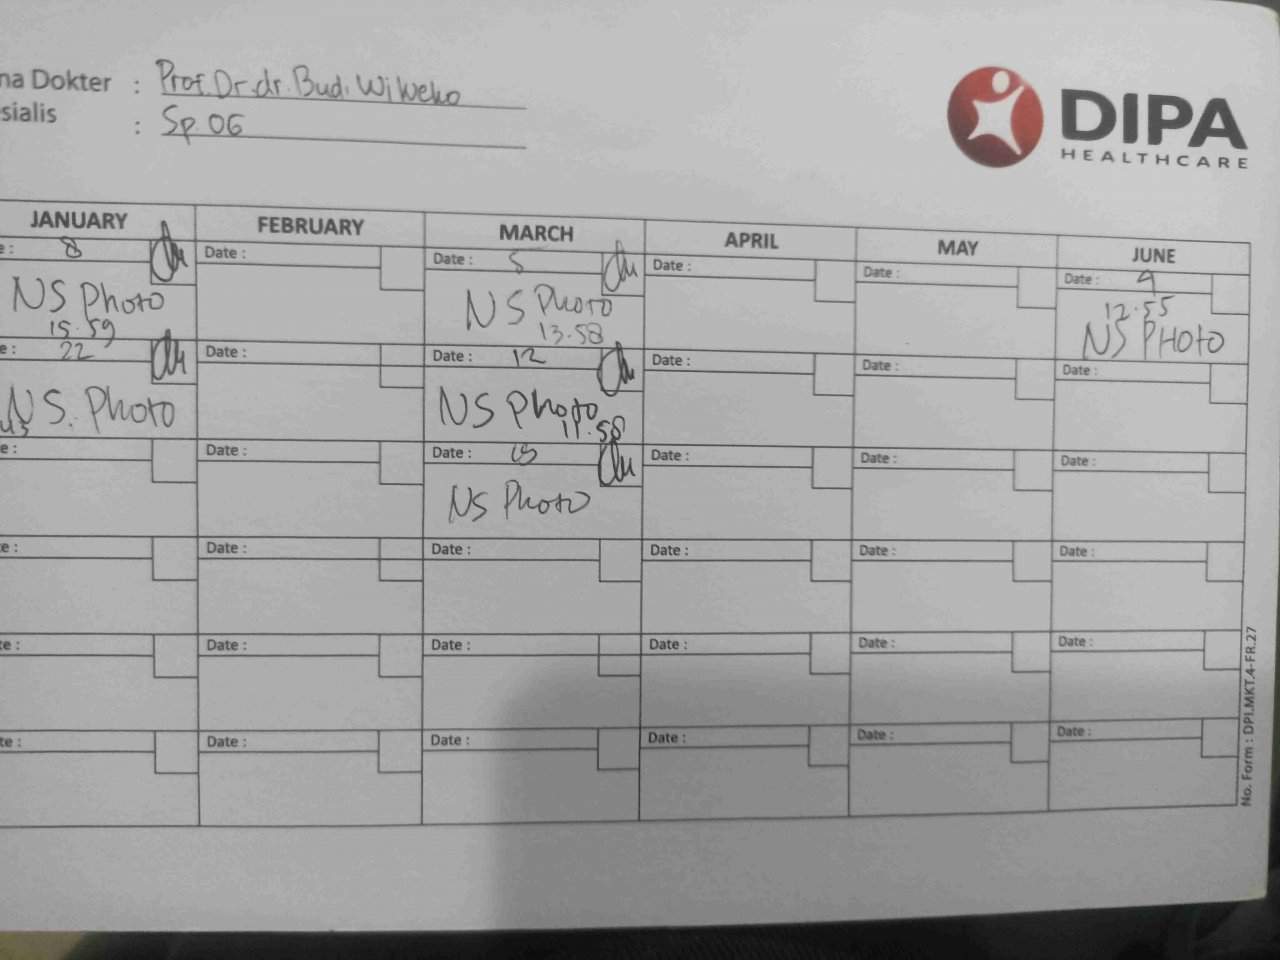 na Dokter : Prof. Dr. dr. Budi Wiweko
sialis : Sp. OG
DIPA
HEALTHCARE
JANUARY FEBRUARY MARCH APRIL MAY JUNE
e : 8 Date : Date : 5 Date : Date : Date : 9
NS Photo NS Photo 12.55
15.59 13.58 NS PHoto
e : 22 Date : Date : 12 Date : Date : Date :
NS. Photo NS Photo
11.58
e : Date : Date : Date : Date : Date :
NS Photo
e : Date : Date : Date : Date : Date :
te : Date : Date : Date : Date : Date :
te : Date : Date : Date : Date : Date :
No. Form : DPI.MKT.4-FR.27